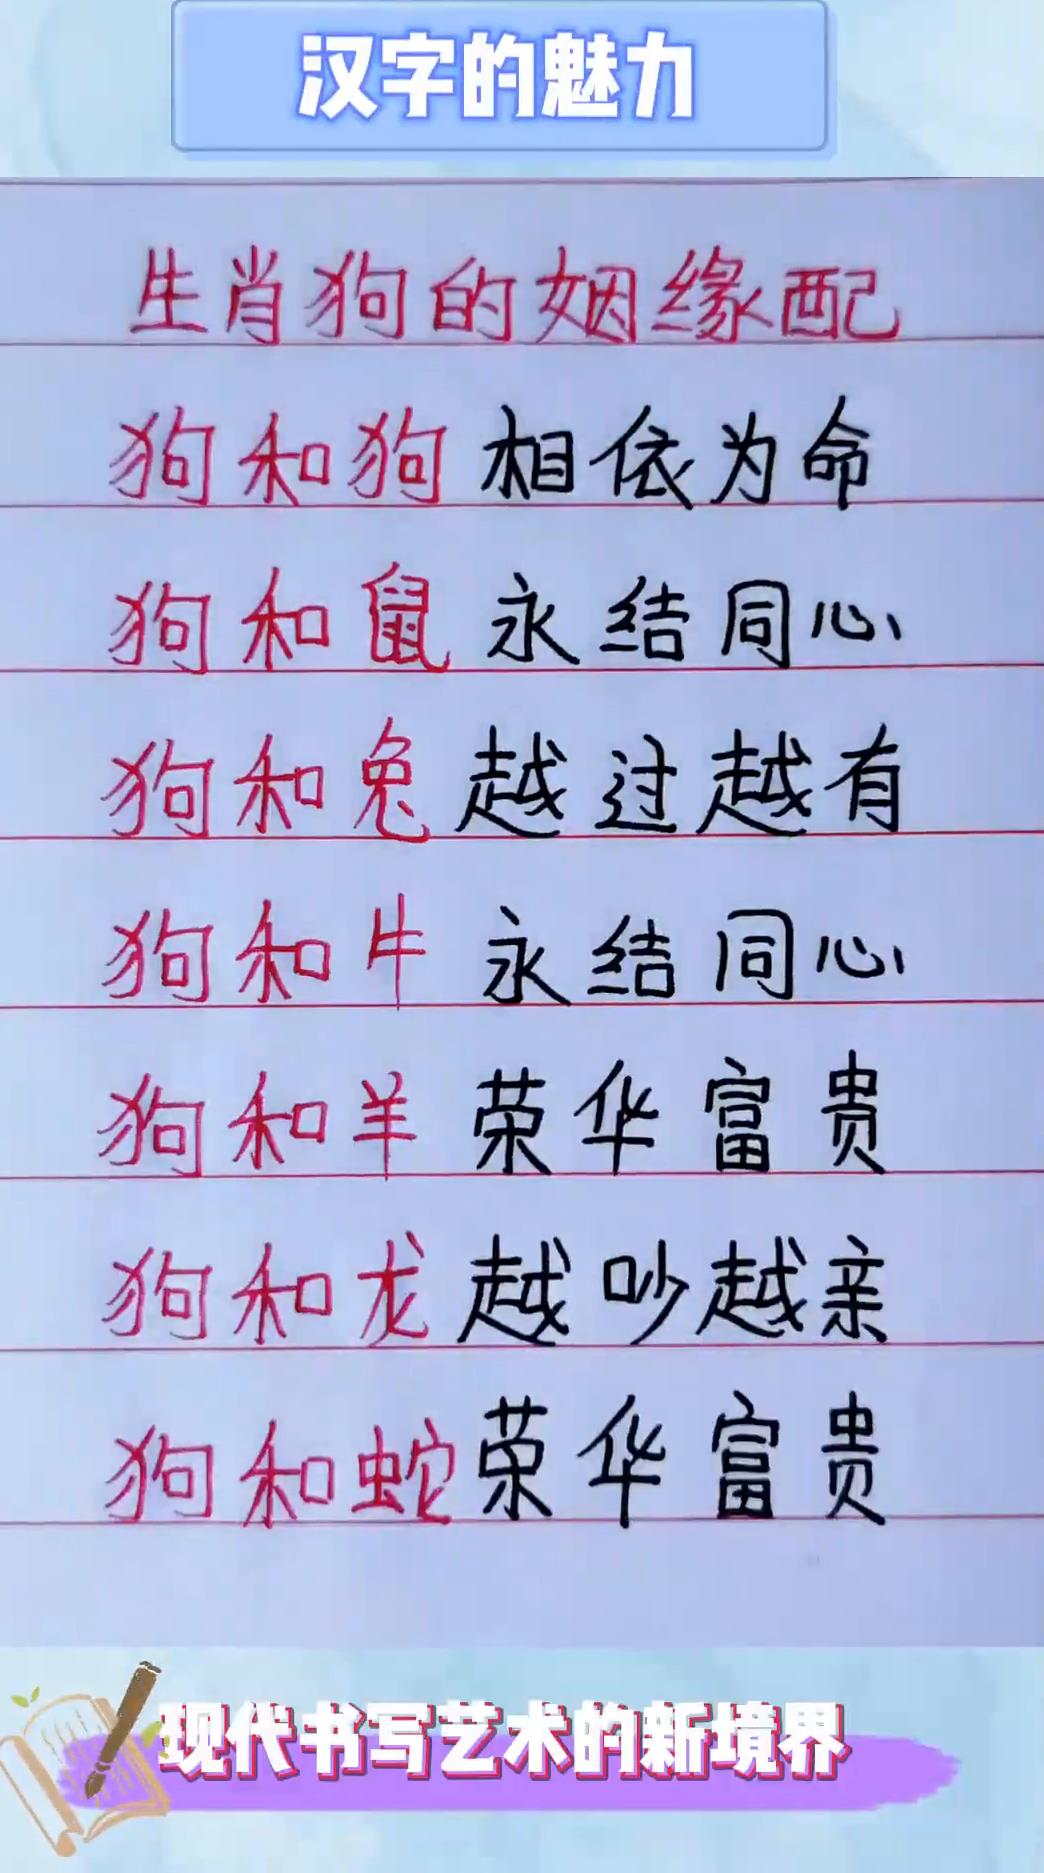 汉字的魅力
生肖狗的姻缘配
狗和狗 相依为命
狗和鼠 永结同心
狗和兔 越过越有
狗和牛 永结同心
狗和羊 荣华富贵
狗和龙 越吵越亲
狗和蛇 荣华富贵
现代书写艺术的新境界